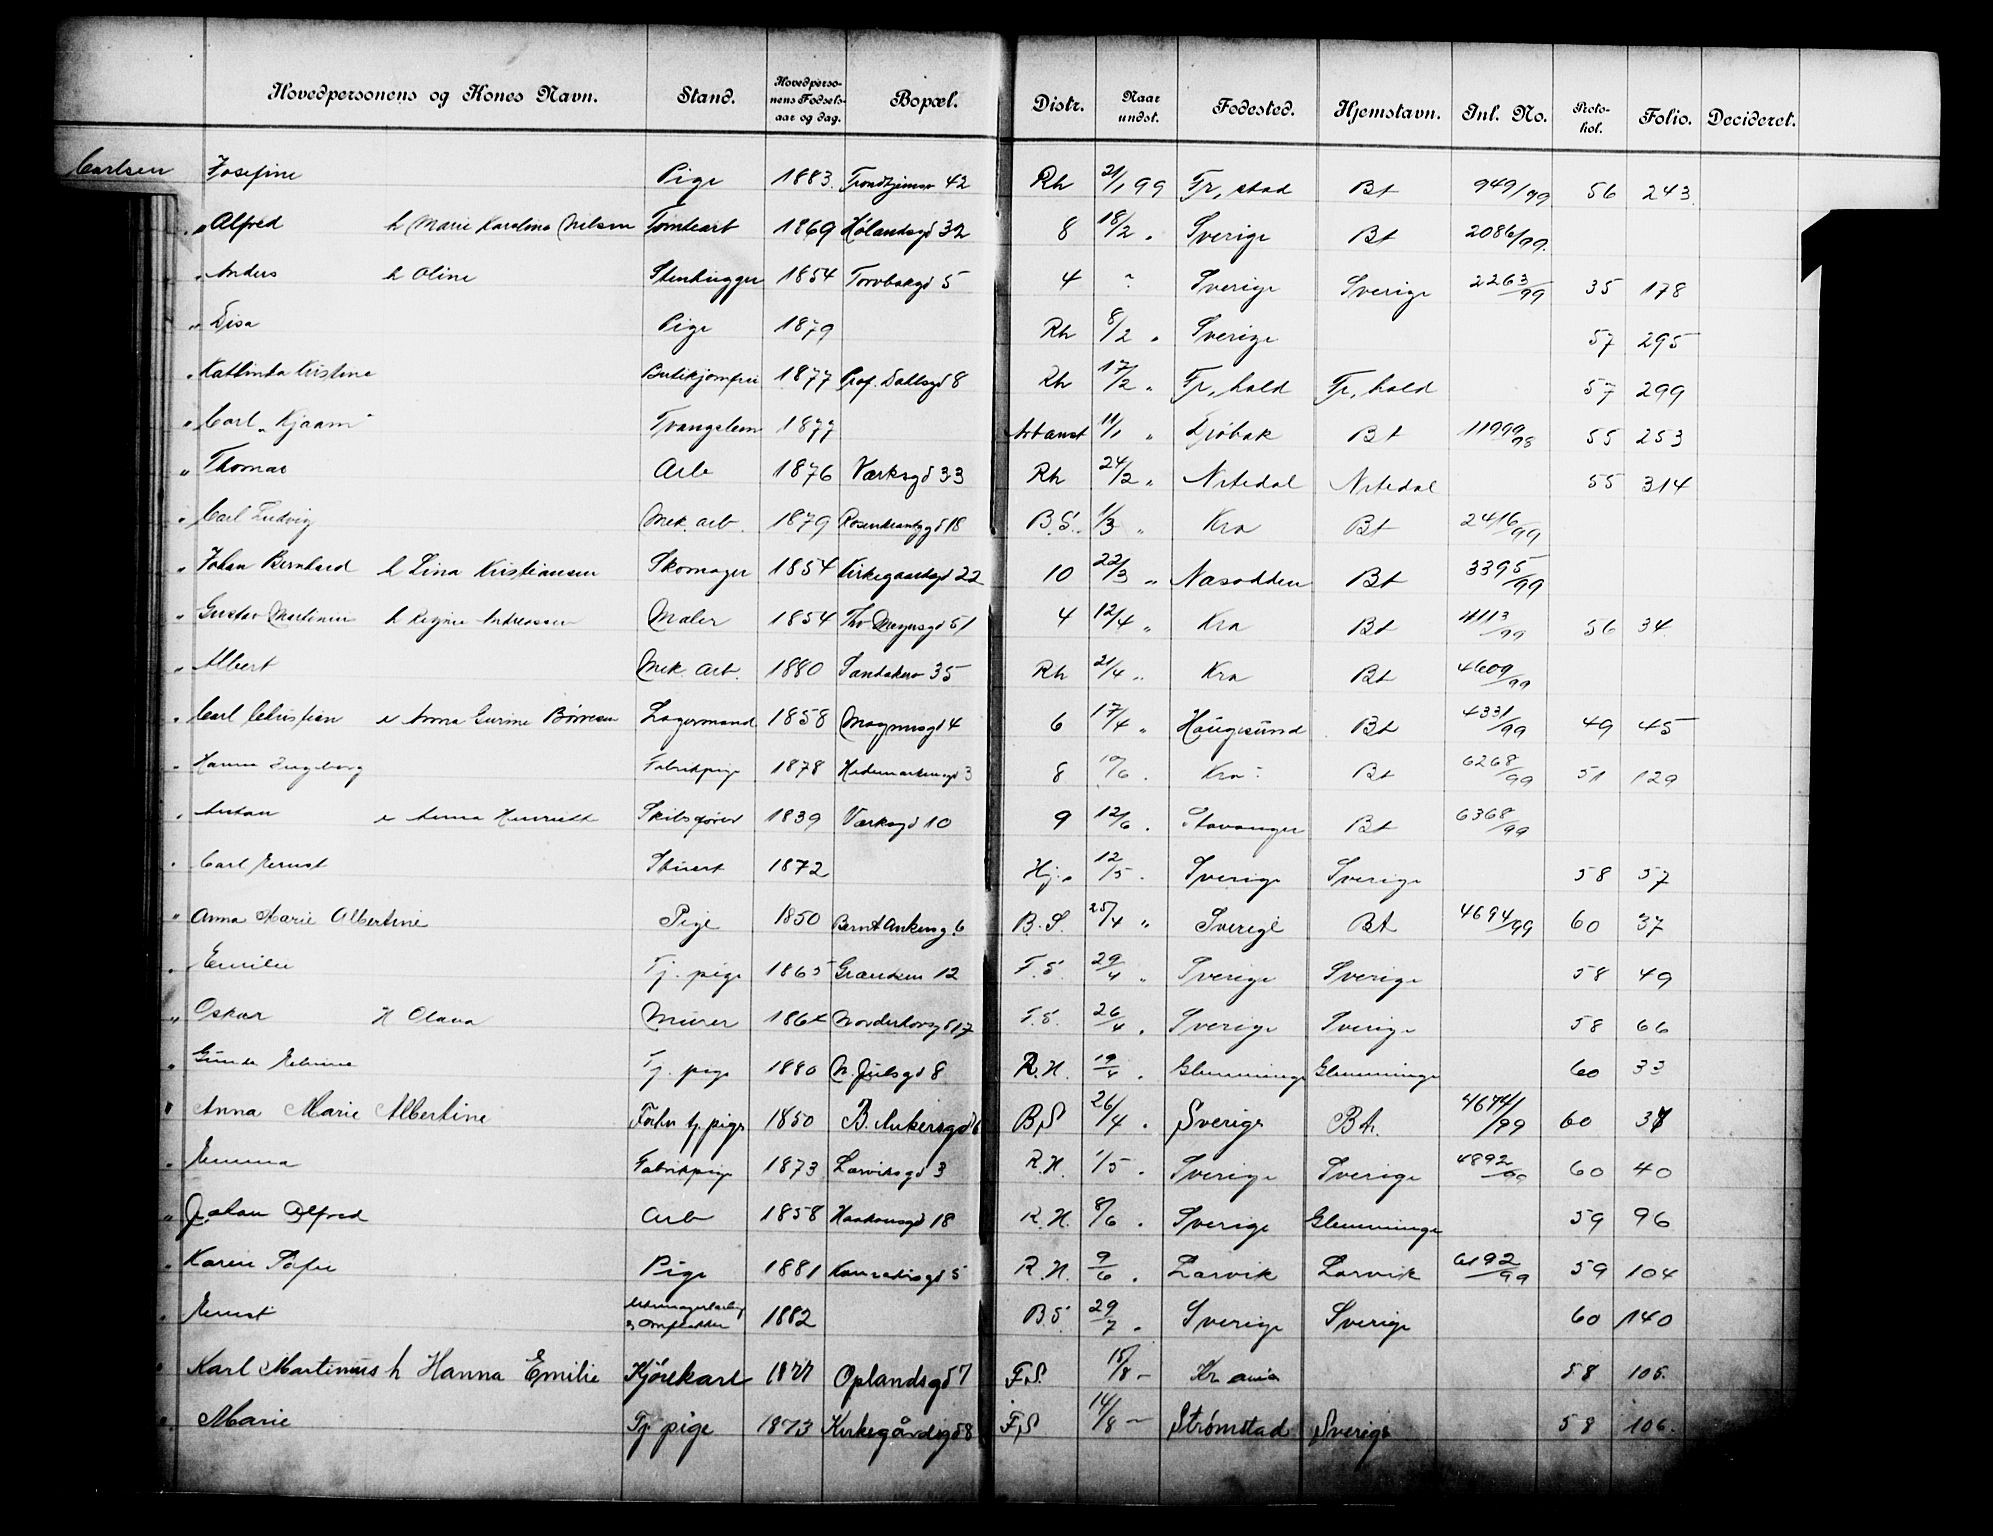 Hovedpersonens og Kones Navn. Stand. Hovedperso-nens Fødsels-aar og dag. Bopæl. Distr. Naar undst. Fødested. Hjemstavn. Inl. No. Proto-kol. Folio. Decideret.
Carlsen Josefine Pige 1883. Trondhjemsv 42 Rh 21/1 99 Fr,stad Bt 949/99 56 243.
" Alfred h Marie Karoline Nilsen Tomteart 1869 Hølandsgd 32 8 18/2 " Sverige Bt 2086/99.
" Anders h Oline Stenhugger 1854 Torvbakgd 5 4 " Sverige Sverige 2263/99 35 178
" Disa Pige 1879 Rh 8/2 " Sverige 57 295
" Kathinka Kristine Butikjomfru 1877 Prof. Dahlsgd 8 Rh 17/2 " Fr,hald Fr,hald 57 299
" Carl "Kjaam" Tvangslem 1877 Arbanst 11/1 " Drøbak Bt 11999/98 55 253
" Thomas Arb 1876 Værksgd 33 Rh 24/2 " Nitedal Nitedal 55 314
" Carl Ludvig Mek. arb. 1879 Rosenkrantzgd 18 B.S. 1/3 " Kra Bt 2416/99
" Johan Bernhard h Lina Kristiansen Skomager 1854 Kirkegaardsgd 22 10 22/3 " Næsodden Bt 3395/99
" Gustav Martinius h Regine Andreassen Maler 1854 Thv Meyersgd 51 4 12/4 " Kra Bt 4113/99 56 34.
" Albert Mek. arb. 1880 Sandakerv 35 Rh 21/4 " Kra Bt 4609/99
" Carl Christian e Anna Gurine Børresen Lagermand 1858 Magnusgd 4 6 17/4 " Haugesund Bt 4331/99 49 45
" Hanna Ingeborg Fabrikpige 1878 Hedemarkensgd 3 8 10/6 " Kra Bt 6268/99 51 129
" Anton e Anna Henriette Skibsfører 1839 Værksgd 10 9 12/6 " Stavanger Bt 6368/99
" Carl Ernst Stuert 1872 Hj. 12/5 " Sverige Sverige 58 57
" Anna Marie Albertine Pige 1850 Bernt Ankersg. 6 B.S. 25/4 " Sverige Bt 4694/99 60 37
" Emilie Tj. pige 1865 Grændsen 12 F.S. 29/4 " Sverige Sverige 58 49
" Oskar H Olava Murer 1864 Norderhovsgd 17 F.S. 26/4 " Sverige Sverige 58 66
" Gunda Tj. pige 1880 N. Juelsgd 8 R.H. 19/4 " Glemminge Glemminge 60 33
" Anna Marie Albertine Forhv tj. pige 1850 B. Ankersgd 6 BS 26/4 " Sverige Bt. 4674/99 60 37
" Emma Fabrikpige 1873 Larviksgd 3 R.H. 1/5 " Sverige Sverige 4892/99 60 40
" Johan Alfred Arb 1858 Haakonsgd 18 R.H. 8/6 " Sverige Glemminge 59 96
" Karen Sofie Pige 1881 Konradisgd 5 R.H. 9/6 " Larvik Larvik 6192/99 59 104
" Ernst Urtemagerlærling og omstreifer 1882 BS 29/7 " Sverige Sverige 60 140
" Karl Martinius h Hanna Emilie Kjørekarl 1877 Oplandsgd 7 F.S. 15/8 - Kr ania 58 105.
" Marie Tj pige 1873 Kirkegårdsgd 8 F,S 14/8 - Strømstad Sverige 58 106.